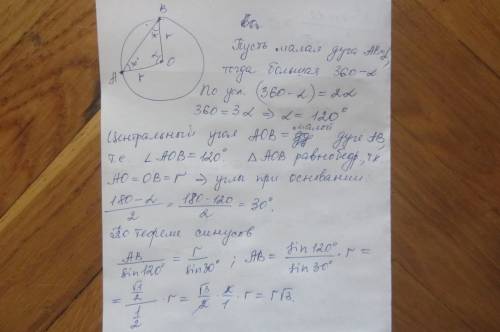 B
x
r
α
O
x
A
r
Пусть малая дуга AB=α,
тогда большая 360-α
По усл. (360-α) = 2α
360=3α ⇒ α=120°
Центральный угол AOB = малой дуге AB,
т.е ∠AOB=120° △AOB равнобедр, тк
AO=OB=r ⇒ углы при основании
(180-α)/2 = (180-120)/2 = 30°.
По теореме синусов
AB/sin120° = r/sin30° ; AB = sin120°/sin30° · r =
= (√3/2)/(1/2) · r = √3/2 · 2/1 · r = r√3.